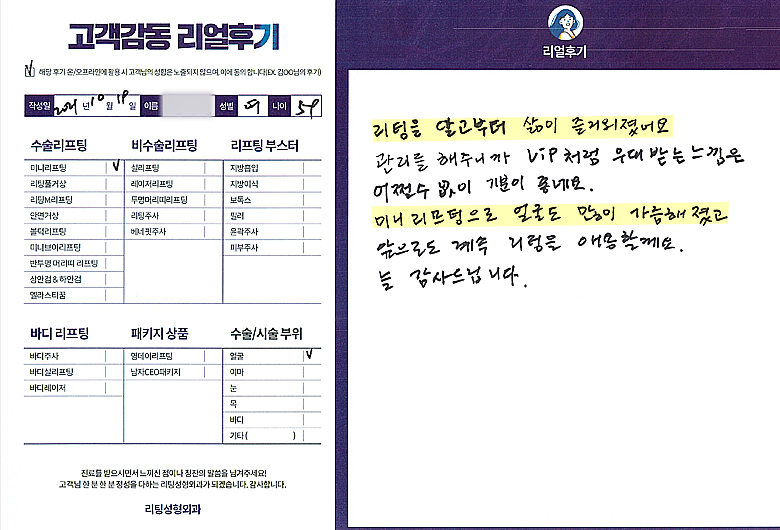 고객감동 리얼후기
해당 후기 온/오프라인에 활용 시 고객님의 성함은 노출되지 않으며, 이에 동의 합니다(EX. 김OO님의 후기)
작성일 2021 년 10 월 19 일 이름 성별 여 나이 54
수술리프팅
미니리프팅 V
리팅풀거상
리팅M리프팅
안면거상
볼턱리프팅
미니브이리프팅
반투명 머리띠 리프팅
상안검 & 하안검
엘라스티꿈
비수술리프팅
실리프팅
레이저리프팅
투명머리띠리프팅
리팅주사
베네핏주사
리프팅 부스터
지방흡입
지방이식
보톡스
필러
윤곽주사
피부주사
바디 리프팅
바디주사
바디실리프팅
바디레이저
패키지 상품
원데이리프팅
남자CEO패키지
수술/시술 부위
얼굴 V
이마
눈
목
바디
기타 ( )
진료를 받으시면서 느끼신 점이나 칭찬의 말씀을 남겨주세요!
고객님 한 분 한 분 정성을 다하는 리팅성형외과가 되겠습니다. 감사합니다.
리팅성형외과
리얼후기
리팅을 알고부터 삶이 즐거워졌어요
관리를 해주니까 VIP처럼 우대 받는 느낌은
어쩔수 없이 기분이 좋네요.
미니리프팅으로 얼굴도 많이 갸름해졌고
앞으로도 계속 리팅을 애용할께요.
늘 감사드립니다.